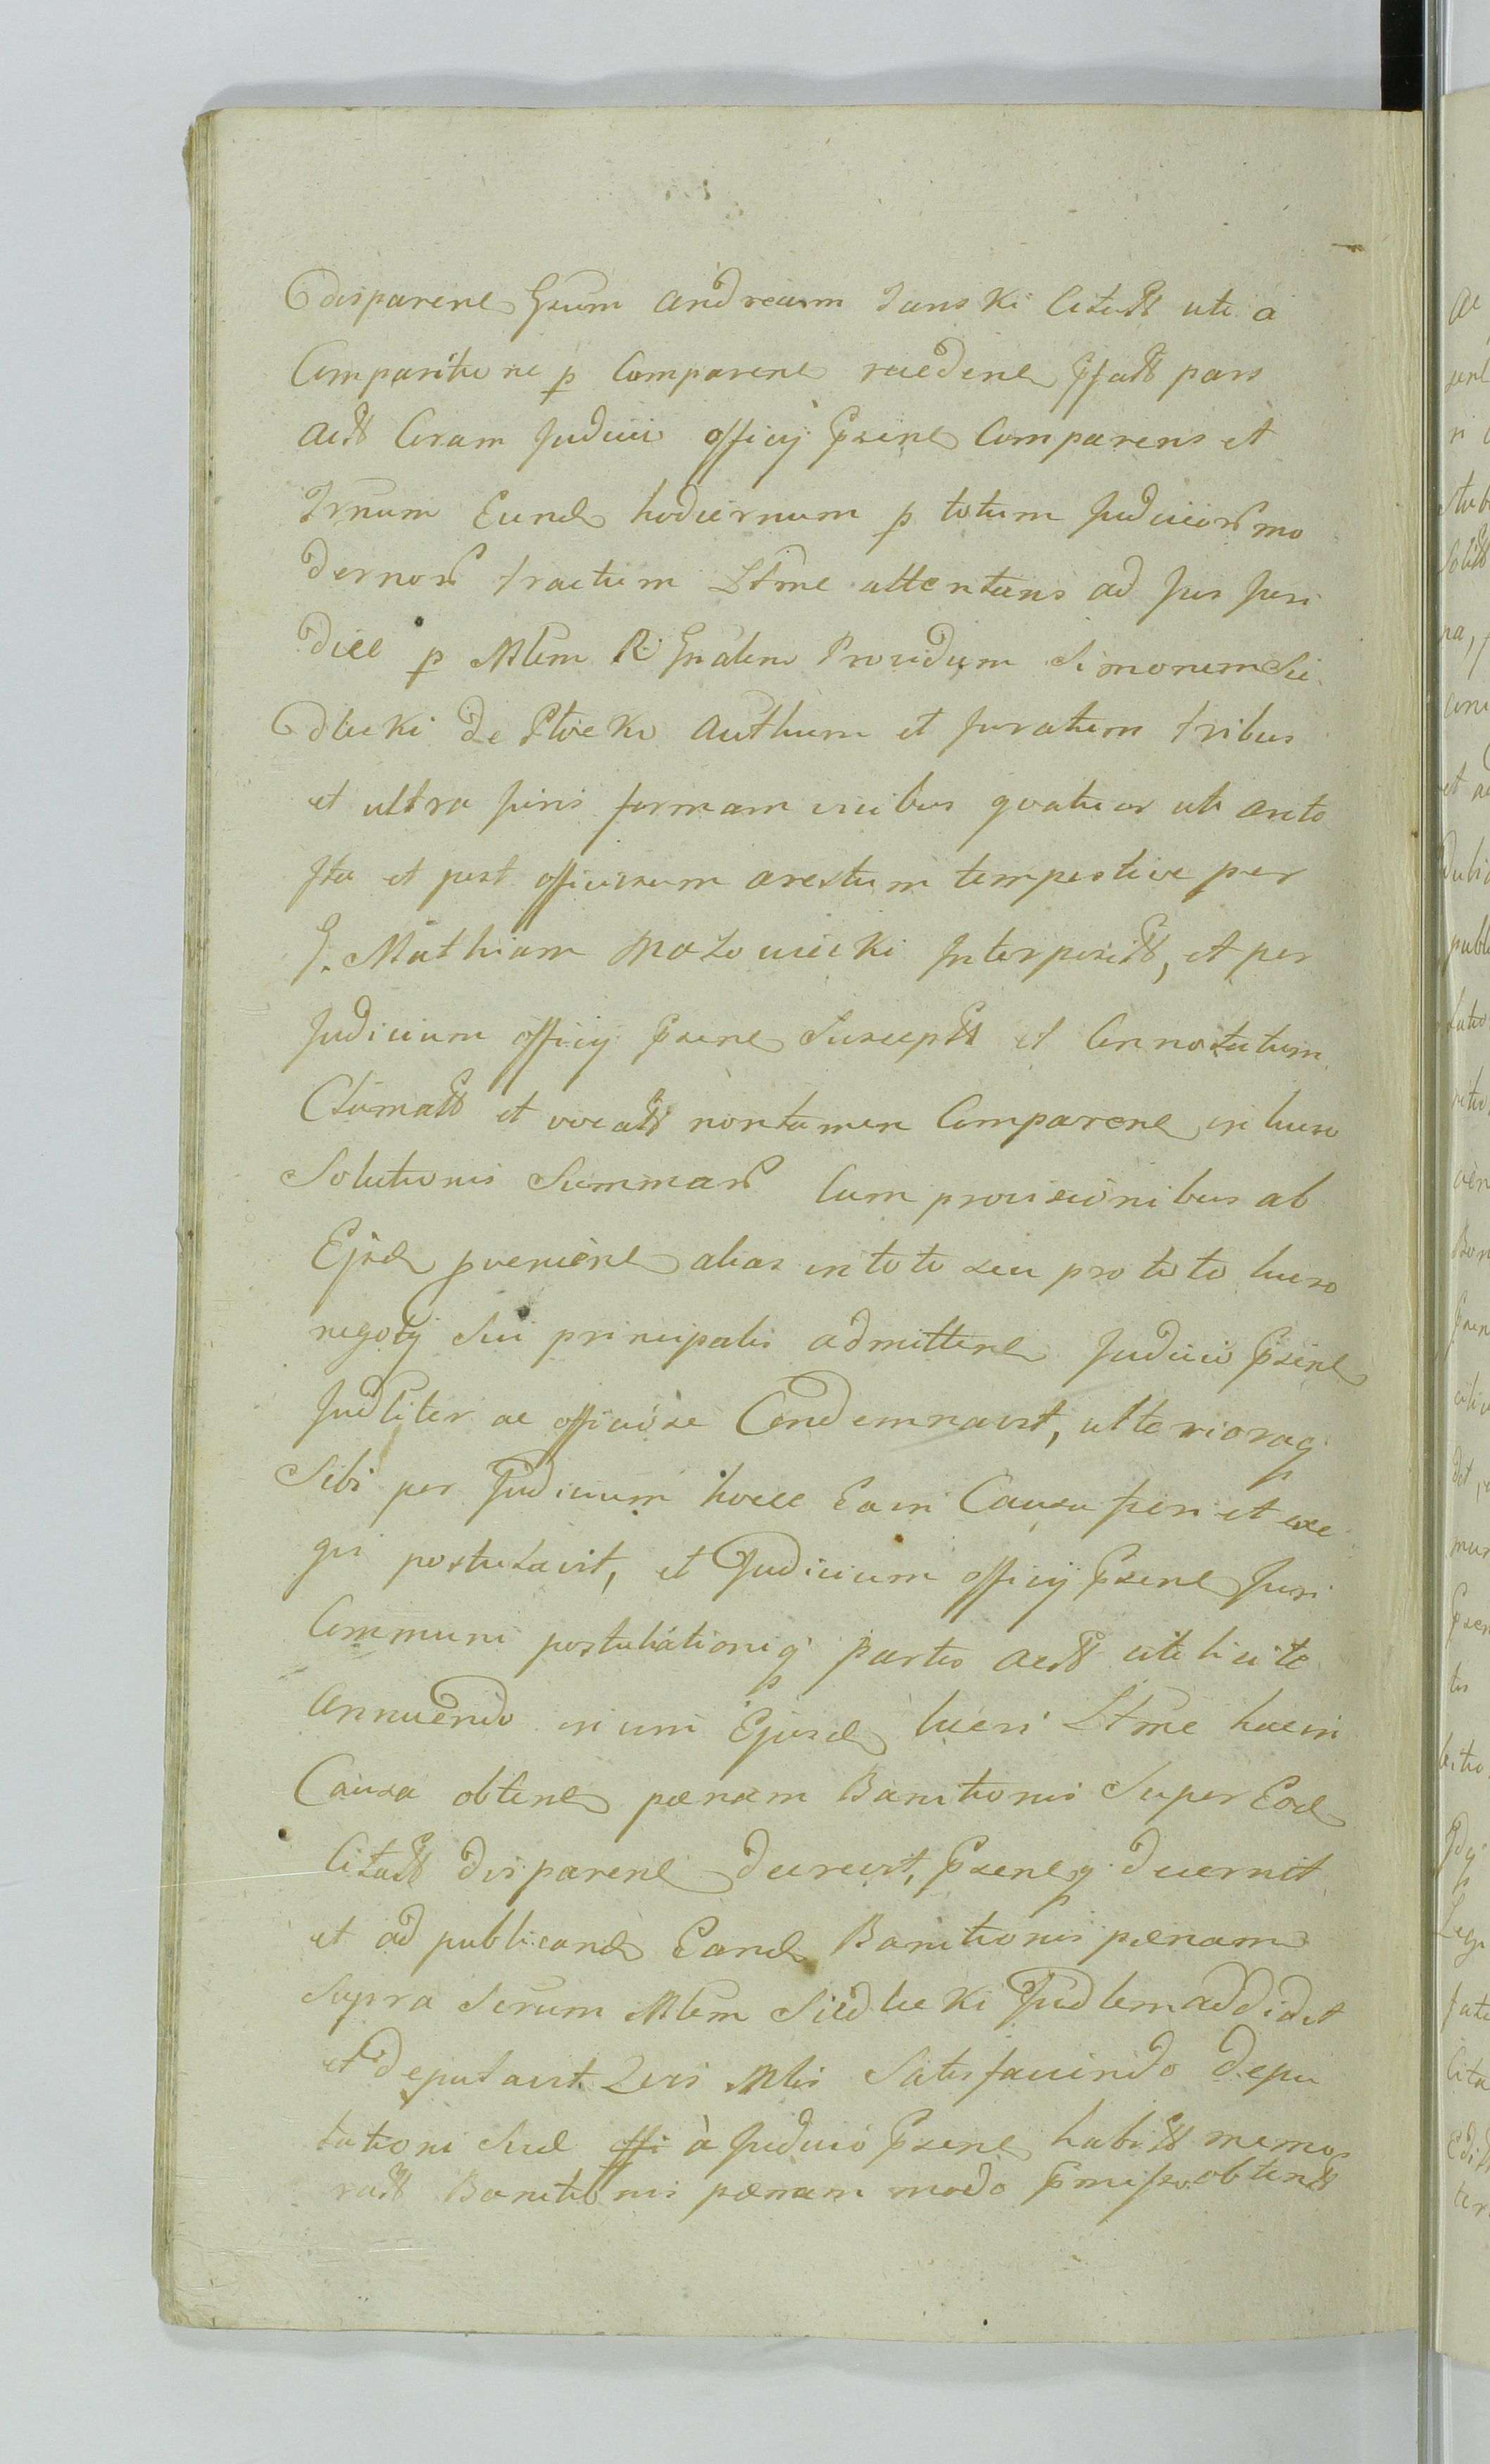 disparen Gsum Andream Janski Citatt uti a
Comparitione p Comparen raeden pfatt pars
Actt Coram Judicio officij psen Comparens et
Trnum Eund hodiernum p totum Judicior mo
dernor tractum Ltme attentans ad Jus Juri
dice p Mlem R Gnalem Providum Simonem Sie
dlecki de Plocko Authum et Juratum tribus
et ultra Juris formam vicibus quatuor uti ante
Ita et post officiosum arestum tempestive per
G. Mathiam Mazowiecki Interposittt, et per
Judicium officij psen Susceptt et Connotatum
Clamatt et vocatt non tamen Comparen in lucro
Solutionis Summar Cum provisionibus ab
Ejsd pvenien alias in toto seu pro toto lucro
negotij Sui principalis admitten Judicio psen
Judliter ac officiose Condemnavit, ulterioraq
Sibi per Judicium hocce Ea in Causa fieri et exe
qui postulavit, et Judicium officij psen Juri
Communi postulationiq partis Actt uti licite
Annuendo in vim Ejusd lucri Ltme hac in
Causa obten pænam Banitionis Super Eod
Citatt disparen decrevit, psenq decernit
et ad publicand Eand Banitionis pænam
Supra Scrum Mlem Siedlecki Judlem addidit
et deputavit Qui Mlis Satisfaciendo depu
tationi Suæ à Judicio psen habitt memo
ratt Banitionis pænam modo pmisso obtentt